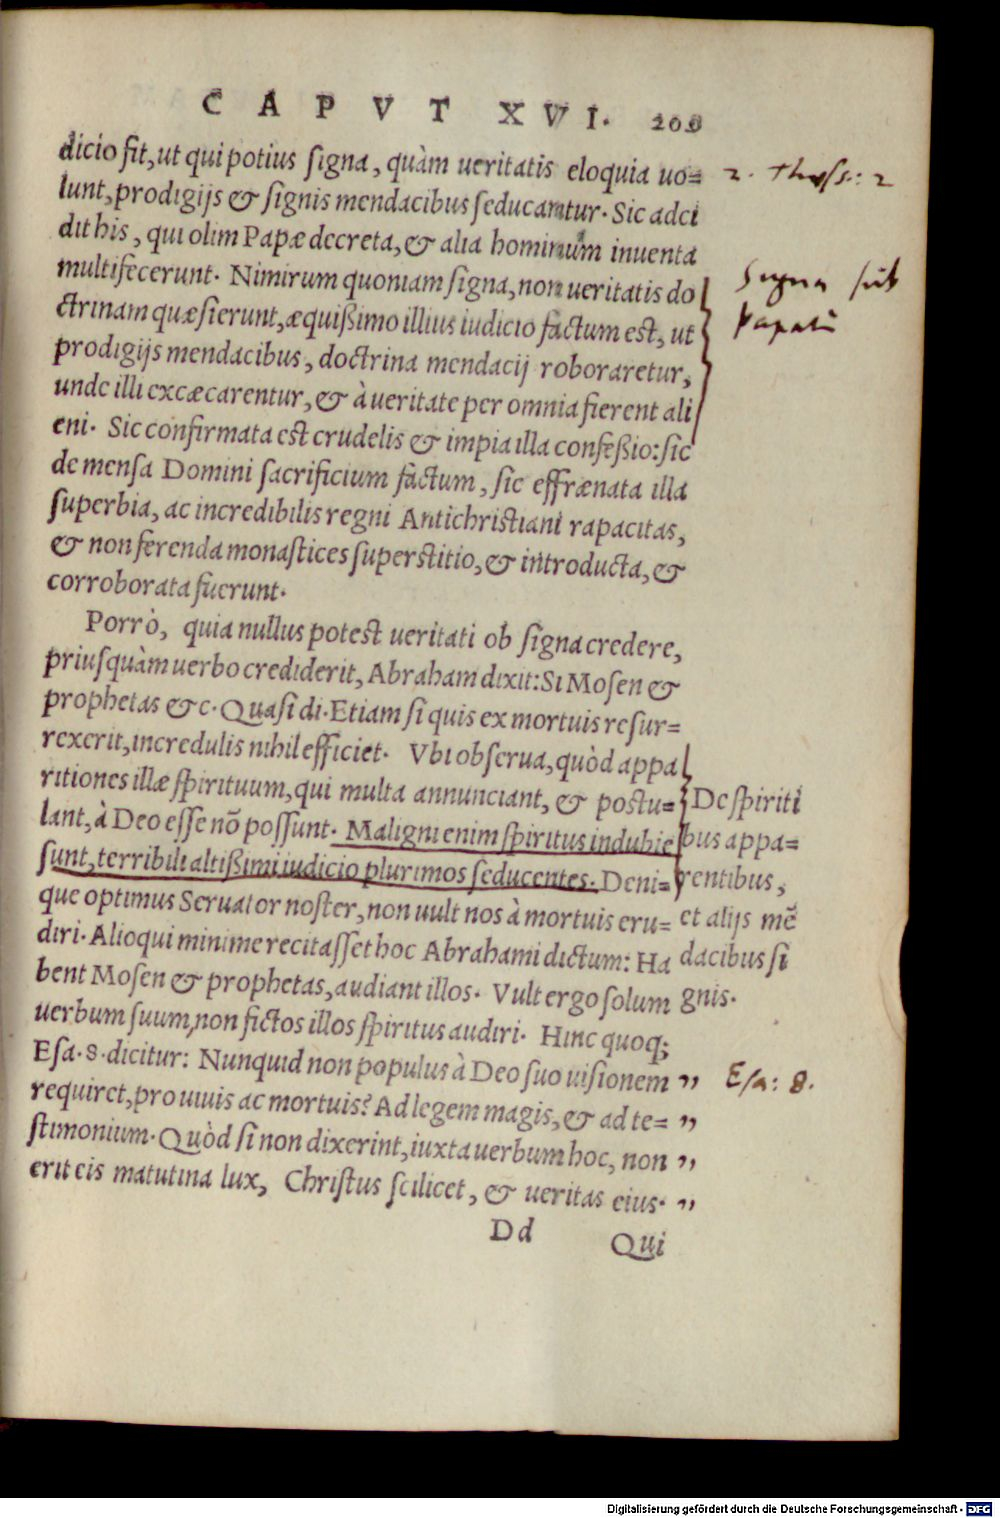 CAPVT XVI.
dicio fit, ut qui potius signa, quàm ueritatis eloquia uo=
lunt, prodigijs & signis mendacibus seducantur. Sic adci
dit his, qui olim Papæ decreta, & alia hominum inuenta
multifecerunt. Nimirum quoniam signa, non ueritatis do
ctrinam quæsierunt, æquißimo illius iudicio factum est, ut
prodigijs mendacibus, doctrina mendacij roboraretur,
unde illi excæcarentur, & à ueritate per omnia fierent ali
eni. Sic confirmata est crudelis & impia illa confeßio: sic
de mensa Domini sacrificium factum, sic effrænata illa
superbia, ac incredibilis regni Antichristiani rapacitas,
& non ferenda monastices superstitio, & introducta, &
corroborata fuerunt.
Porrò, quia nullus potest ueritati ob signa credere,
priusquàm uerbo crediderit, Abraham dixit: Si Mosen &
prophetas &c. Quasi di. Etiam si quis ex mortuis resur=
rexerit, incredulis nihil efficiet. Vbi obserua, quòd appa
ritiones illæ spirituum, qui multa annunciant, & postu=
lant, à Deo esse nō possunt. Maligni enim spiritus indubie
sunt, terribili altißimi iudicio plurimos seducentes. Deni=
que optimus Seruator noster, non uult nos à mortuis eru=
diri. Alioqui minime recitasset hoc Abrahami dictum: Ha
bent Mosen & prophetas, audiant illos. Vult ergo solum
uerbum suum, non fictos illos spiritus audiri. Hinc quoq;
Esa. 8. dicitur: Nunquid non populus à Deo suo uisionem „
requiret, pro uiuis ac mortuis? Ad legem magis, & ad te= „
stimonium. Quòd si non dixerint, iuxta uerbum hoc, non „
erit eis matutina lux, Christus scilicet, & ueritas eius. „
Dd Qui
2. Thess: 2
Signa sub
Papatu
De spiriti
bus appa=
rentibus,
et alijs mē
dacibus si
gnis.
Esa: 8.
Digitalisierung gefördert durch die Deutsche Forschungsgemeinschaft - DFG